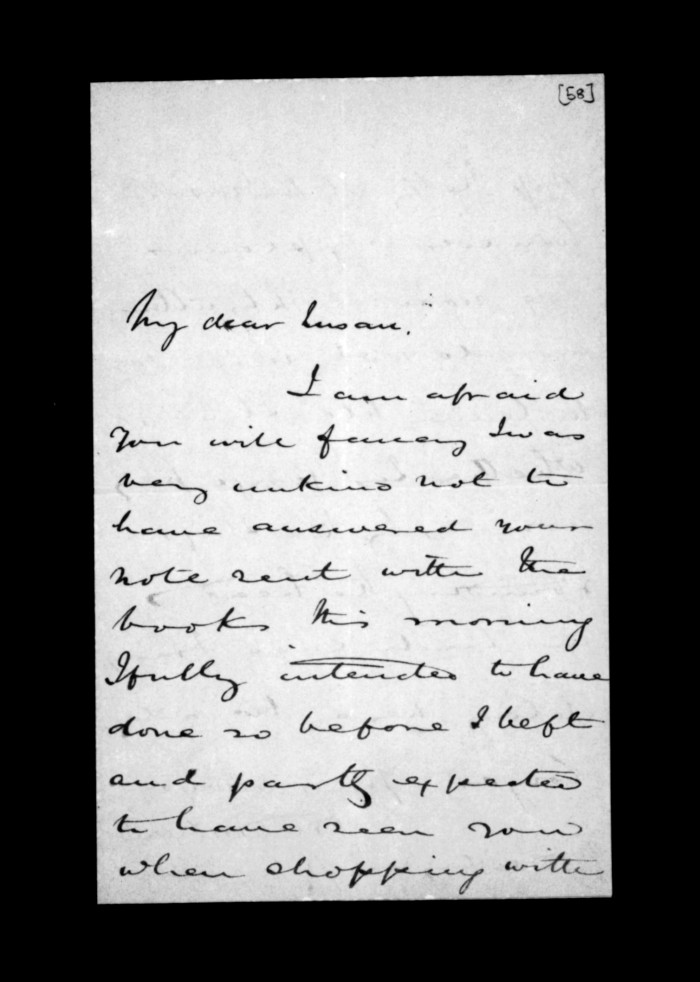 [58]
My dear Susan.
I am afraid
you will fancy I was
very unkind not to
have answered your
note sent with the
books this morning
I fully intended to have
done so before I left
and partly expected
to have seen you
when shopping with